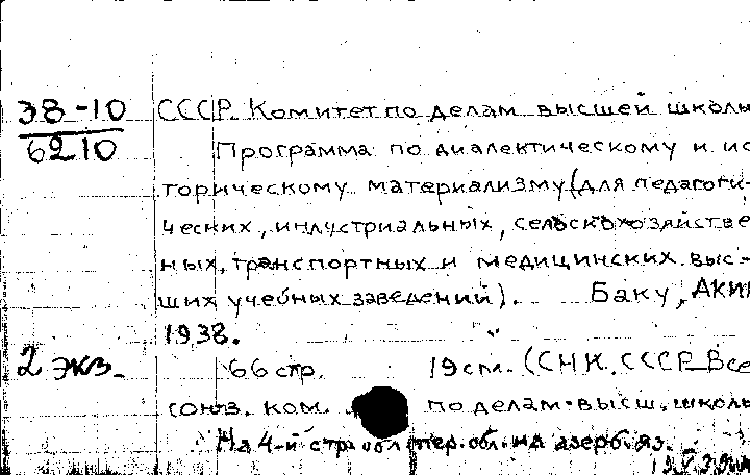 38-10 СССР. Комитет по делам высшей школы
6210
Программа по диалектическому и ис
торическому материализму (для педагоги-
ческих, индустриальных, сельскохозяйстве
ных, транспортных и медицинских выс-
ших учебных заведений). Баку, АКИ
1938.
2 экз. 66 стр. 19 см. (СНК. СССР Все
союз. ком. по делам высш. школы
На 4-й стр. обл. пер. обл. на азерб. яз.